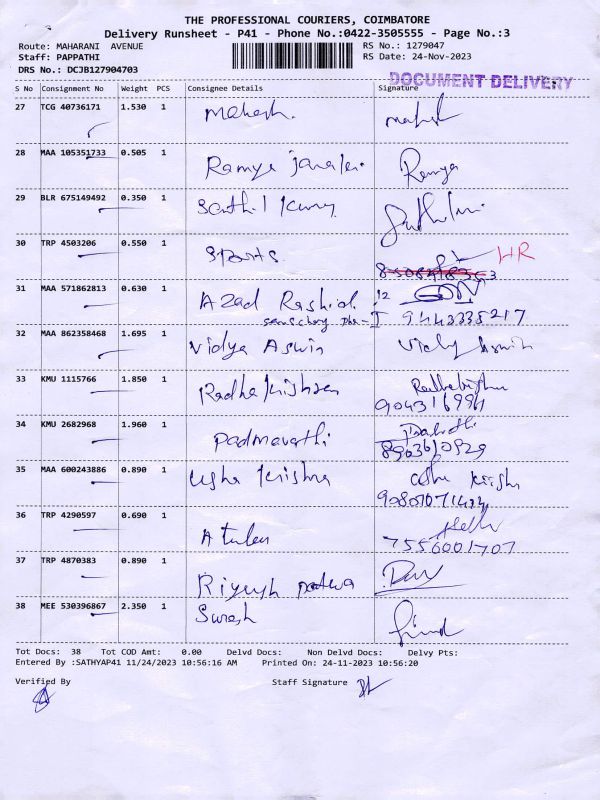 THE PROFESSIONAL COURIERS, COIMBATORE
Delivery Runsheet - P41 - Phone No.:0422-3505555 - Page No.:3
Route: MAHARANI AVENUE RS No.: 1279047
Staff: PAPPATHI RS Date: 24-Nov-2023
DRS No.: DCJB127904703
DOCUMENT DELIVERY
S No Consignment No Weight PCS Consignee Details Signature
27 TCG 40736171 1.530 1 Mahesh.
28 MAA 105351733 0.505 1 Ramya Ramya
29 BLR 675149492 0.350 1
30 TRP 4503206 0.550 1 Sports. HR
31 MAA 571862813 0.630 1 Azad Rashid
9443338217
32 MAA 862358468 1.695 1 Vidya Aswin
33 KMU 1115766 1.850 1 Radha Krishnan
34 KMU 2682968 1.960 1 Padmavathi
35 MAA 600243886 0.890 1 Usha Krishna
36 TRP 4290597 0.690 1
7556001707
37 TRP 4870383 0.890 1
38 MEE 530396867 2.350 1 Suresh
Tot Docs: 38 Tot COD Amt: 0.00 Delvd Docs: Non Delvd Docs: Delvy Pts:
Entered By :SATHYAP41 11/24/2023 10:56:16 AM Printed On: 24-11-2023 10:56:20
Verified By Staff Signature